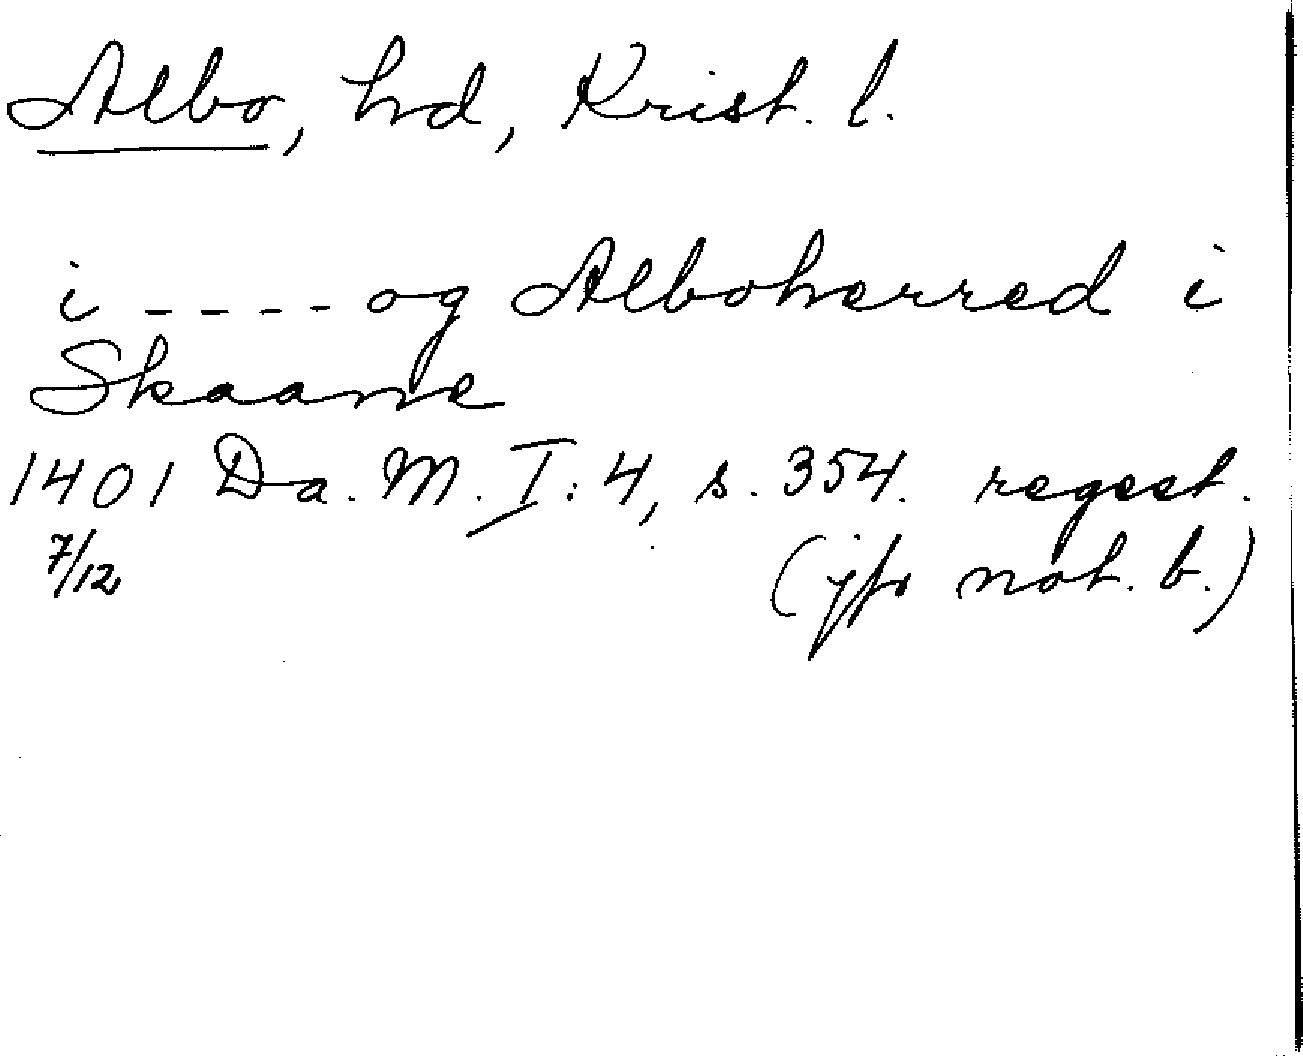 Albo, hd, Krist. l.
i ---- og Alboherred i
Skaane
1401 Da. M. I: 4, s. 354. regest.
7/12 (jfr not. b.)